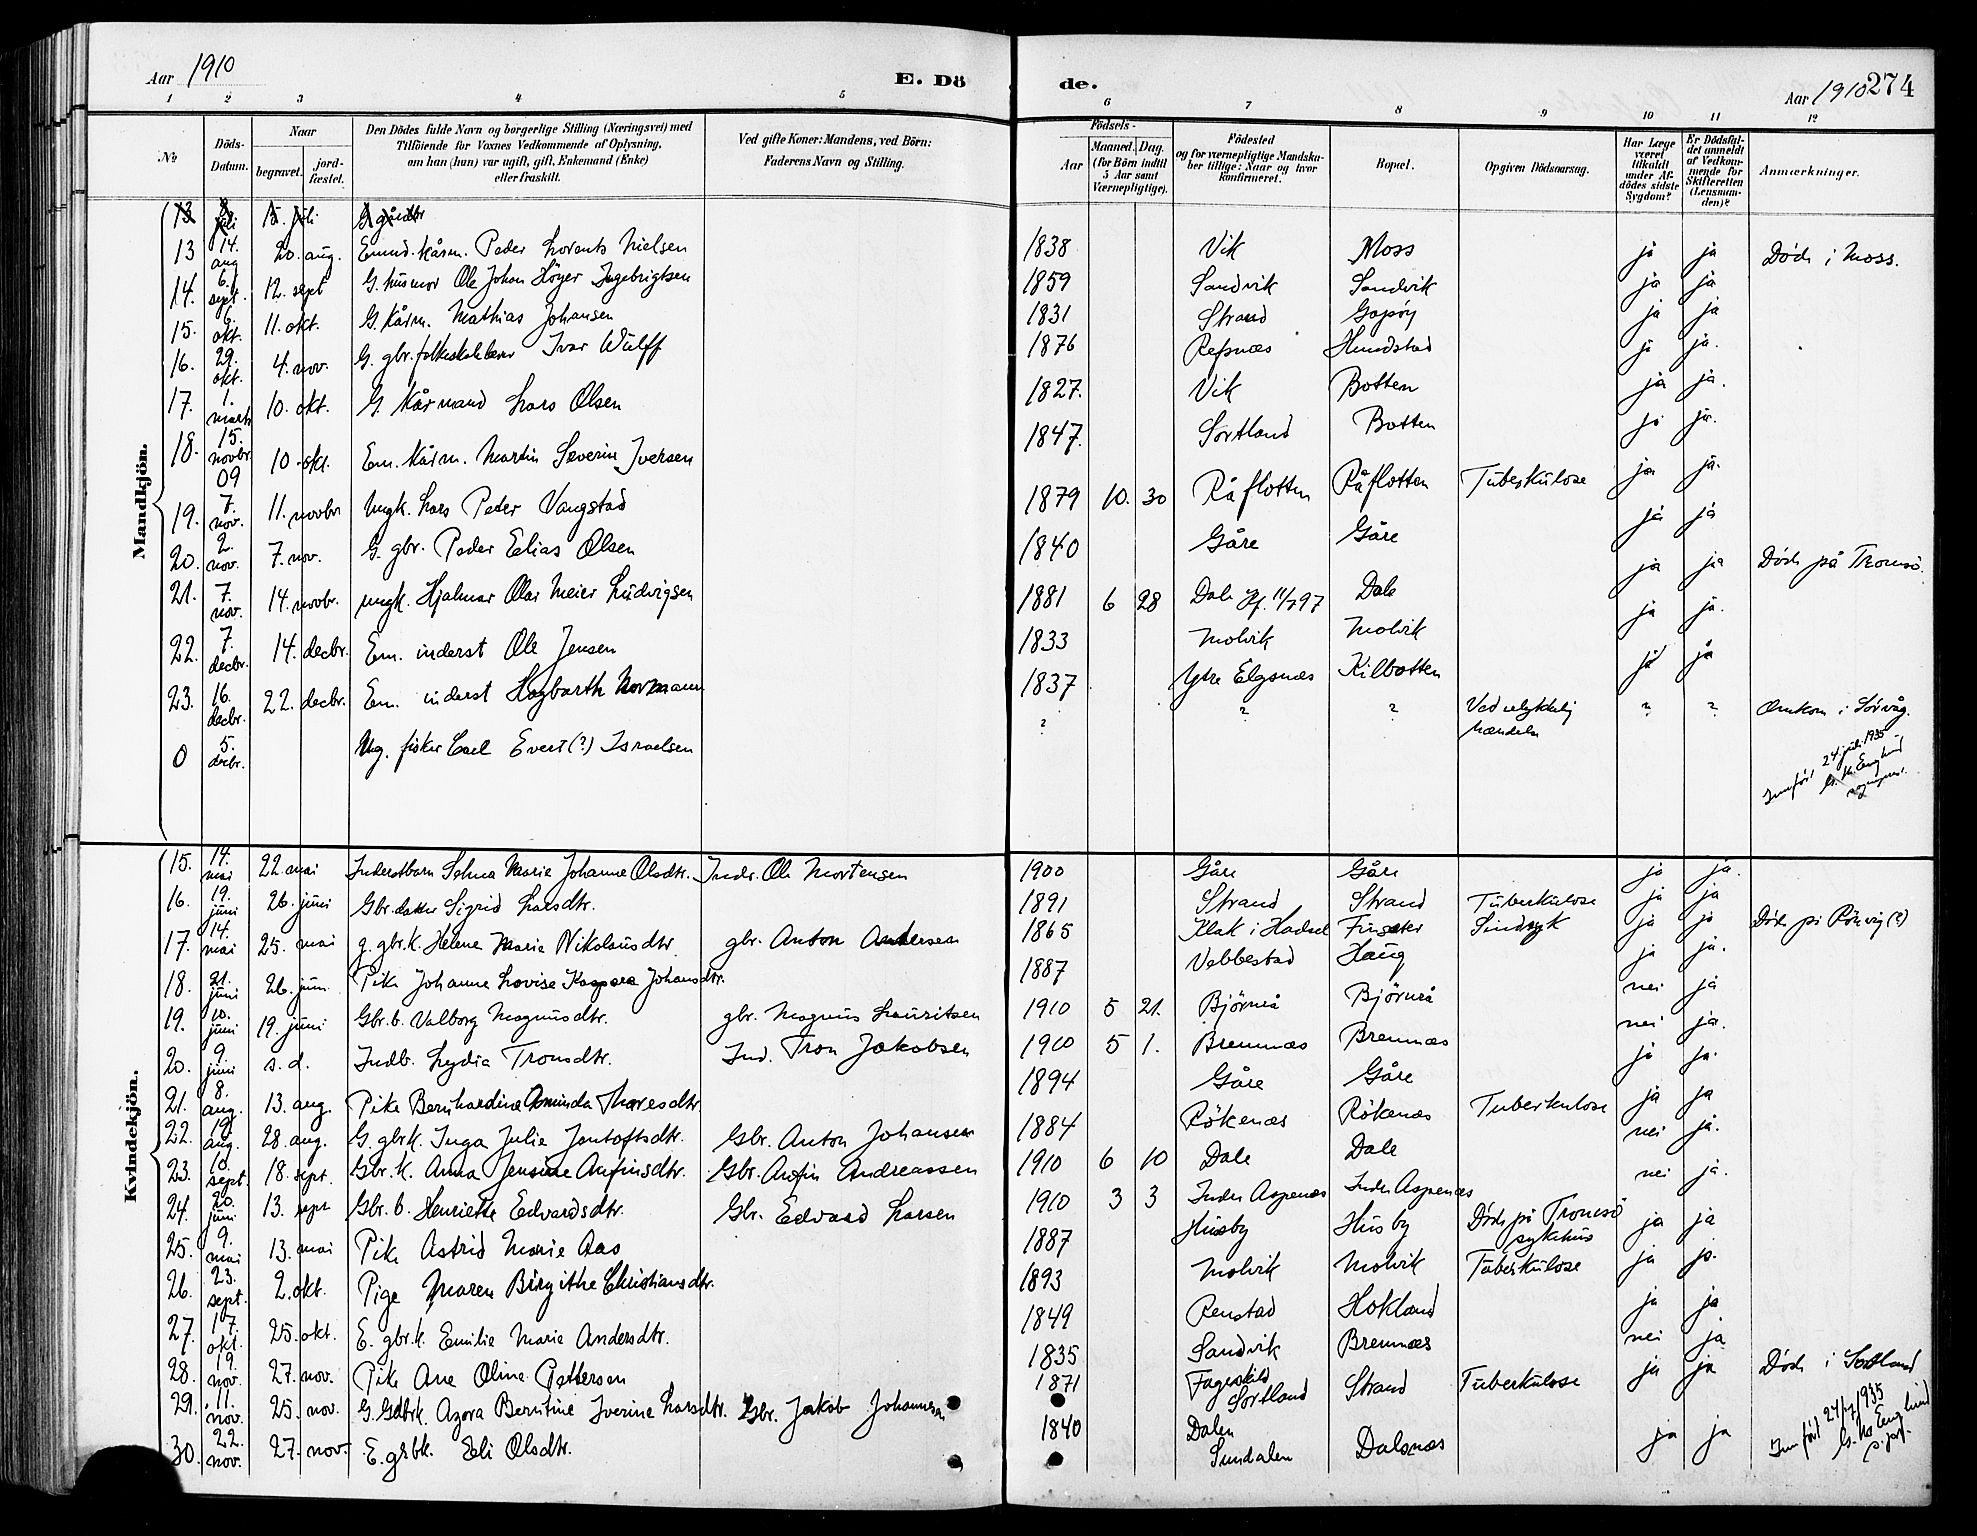 Aar 1910
E. Dö
de.
Aar 1910 274
1 2 3 4 5 6 7 8 9 10 11 12
No
Döds-Datum.
Naar
begravet. jord-fæstet.
Den Dödes fulde Navn og borgerlige Stilling (Næringsvei) med
Tilföiende for Voxnes Vedkommende af Oplysning,
om han (hun) var ugift, gift, Enkemand (Enke)
eller fraskilt.
Ved gifte Koner: Mandens, ved Börn:
Faderens Navn og Stilling.
Födsels-
Aar
Maaned. Dag.
(for Börn indtil
5 Aar samt
Værnepligtige).
Födested
og for værnepligtige Mandska-
ber tillige: Naar og hvor
konfirmeret.
Bopæl.
Opgiven Dödsaarsag.
Har Læge
været
tilkaldt
under Af-
dödes sidste
Sygdom?
Er Dödsfal-
det anmeldt
af Vedkom-
mende for
Skifteretten
(Lensman-
den)?
Anmærkninger.
Mandkjön.
13 juli juli
13 14. aug 20. aug. Enmd. kårm. Peder Lorents Nielsen 1838 Vik Moss ja ja Död i Moss.
14. 6. sept. 12. sept G. husmor Ole Johan Höyer Ingebrigtsen 1859 Sandvik Sandvik ja ja
15. 6. okt. 11. okt. G. kårm. Mathias Johansen 1831 Strand Gapöy ja ja
16. 29. okt. 4. nov. G. gbr. folkeskolelærer Ivar Wulff 1876 Refsnæs Hundstad ja ja.
17. 1. marts 10. okt. G. Kårmand Lars Olsen 1827. Vik Botten ja ja.
18. 15. novbr. 09 10. okt. Em. kårm. Martin Severin Iversen 1847. Sortland Botten ja ja.
19. 7. nov. 11. novbr Ungk. Lars Peder Vangstad 1879 10. 30 Råflotten Råflotten Tuberkulose ja ja.
20. 2. nov. 7. nov. G. gbr. Peder Elias Olsen 1840 Gåre Gåre ja ja
21. 7. nov. 14. novbr. ungk. Hjalmar Olar Meier Ludvigsen 1881 6 28 Dale Kf. 11/7 97 Dale ja ja Död på Tromsö.
22. 7. decbr. 14. decbr. Em. inderst Ole Jensen 1833 Molvik Molvik ja ja.
23. 16. decbr. 22. decbr. Em. inderst Hagbarth Normann 1837 Ytre Elgsnæs Kilbotten ja ja
0 5. decbr. Ug. fisker Carl Evert (?) Israelsen ? ? ? Ved ulykkelig hændelse ? ? Omkom i Sörvåg.
Innfört 24 juli 1935
Kvindekjön.
15. 14. mai 22. mai Inderstbarn Selma Marie Johanne Olsdtr. Inder. Ole Mortensen 1900 Gåre Gåre ja ja.
16. 19. juni 26. juni Gbr. datter Sigrid Larsdtr. 1891 Strand Strand Tuberkulose ja ja
17. 14. mai 25. mai g. gbr.k. Helene Marie Nikolausdtr. gbr. Anton Andersen 1865 Klak i Hadsel Finsæter Sindsyk ja ja Död på Rönvig (?)
18. 21. juni 26. juni Pike Johanne Lovise Kaspara Johansdtr. 1887 Vebbestad Haug ja ja.
19. 10. juni 19. juni Gbr. b. Valborg Magnusdtr. gbr. Magnus Lauritsen 1910 5 21. Björnrå Björnrå nei ja
20. 9. juni s. d. Indb. Lydia Tronsdtr. Ind. Tron Jakobsen 1910 5 1. Bremnæs Bremnæs nei ja.
21. 8. aug. 13. aug. Pike Bernhardine Asminda Thoresdtr 1894 Gåre Gåre ja ja.
22. 19. aug. 28. aug. G. gbrk. Inga Julie Jentoftsdtr. Gbr. Anton Johansen 1884 Rökenæs Rökenæs Tuberkulose ja ja
23. 10. sept. 18. sept. Gbr. k. Anna Jensine Arfinsdtr. Gbr. Arfin Andreassen 1910 6 10 Dale Dale nei ja.
24. 20. juni 13. sept Gbr. b. Henriette Edvardsdtr. Gbr. Edvard Larsen 1910 3 3 Inder Aspenæs Inder Aspenæs nei ja.
25. 9. mai 13. mai Pike Astrid Marie Aas 1887 Husby Husby Död på Tromsö sykehus ja ja
26. 23. sept. 2. okt. Pige Maren Birgithe Christiansdtr. 1893 Molvik Molvik Tuberkulose ja ja.
27. 17. okt. 25. okt. E. gbr.k. Emilie Marie Andersdtr. 1849 Renstad Hokland ja ja
28. 19. nov. 27. nov. Pike Ane Oline Pettersen 1835 Sandvik Bremnæs nei ja
29. 11. nov. 25. nov. G. Gdbrk. Azora Berntine Iverine Larsdtr. Gbr. Jakob Johannesen 1871 Sortland Strand Tuberkulose ja ja Död i Sortland
30. 22. nov. 27. nov. E. gbrk. Eli Olsdtr. 1840 Dalen Sundalen Dalsnæs ja ja
Innfört 24/7 1935